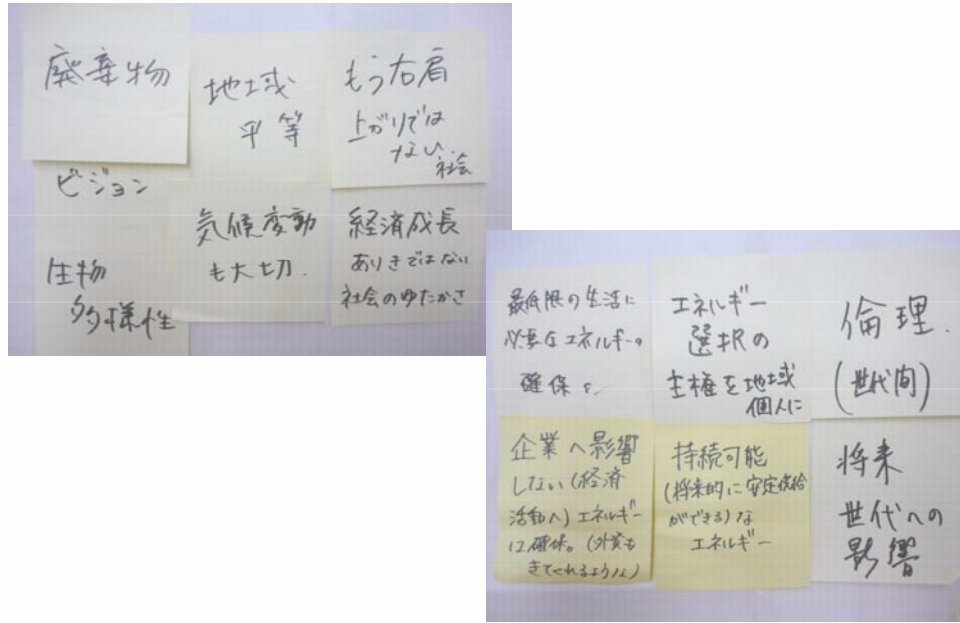 廃棄物
地域
平等
もう右肩
上がりでは
ない
社会
ビジョン
生物
多様性
気候変動
も大切.
経済成長
ありきではない
社会のゆたかさ
最低限の生活に
必要なエネルギーの
確保
エネルギー
選択の
主権を地域
個人に
倫理.
(世代間)
企業へ影響
しない(経済
活動へ)エネルギー
に確保。(外資も
きてくれるような)
持続可能
(将来的に安定供給
ができる)な
エネルギー
将来
世代への
影響